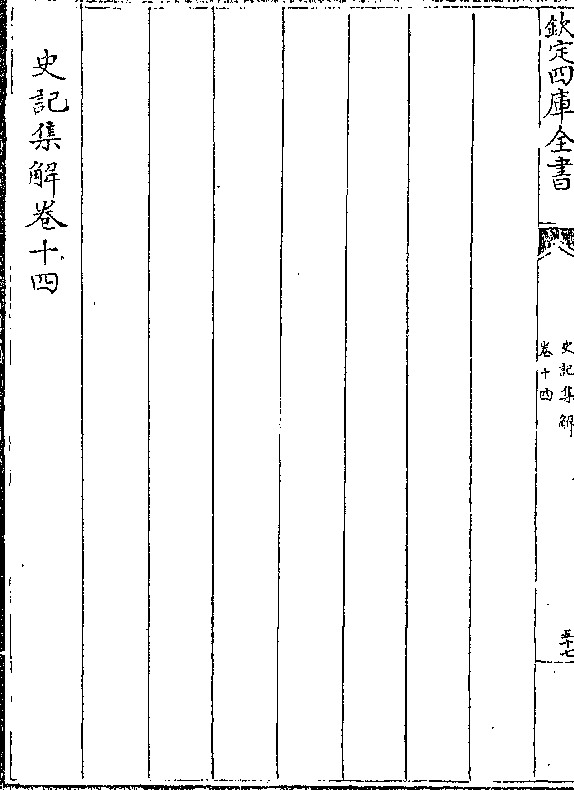 欽定四庫全書
史記集解
卷十四
五十七
史記集解卷十四